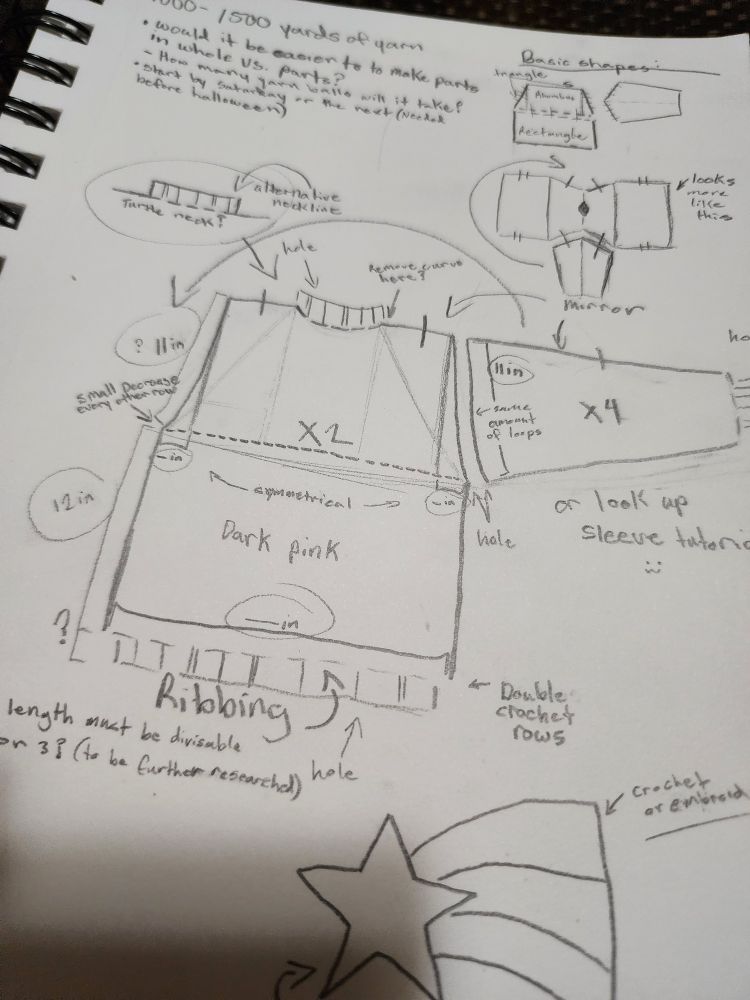 1500 yards of yarn
• would it be easier to to make parts
in whole vs. parts?
- How many yarn balls will it take?
• start by saturday or the next (Needed
before halloween)
Basic shapes:
triangle
Rhombus
Rectangle
alternative
neckline
Turtle neck?
looks
more
like
this
hole
Remove curve
here?
mirror
? 11in
small Decrease
every other row
X2
11in
same
amount
of loops
X4
— in
symmetrical
— in
12in
Dark pink
hole
or look up
sleeve
:)
— in
?
Ribbing
Double
crochet
rows
length must be divisable
or 3? (to be further researched)
hole
crochet
or embroid